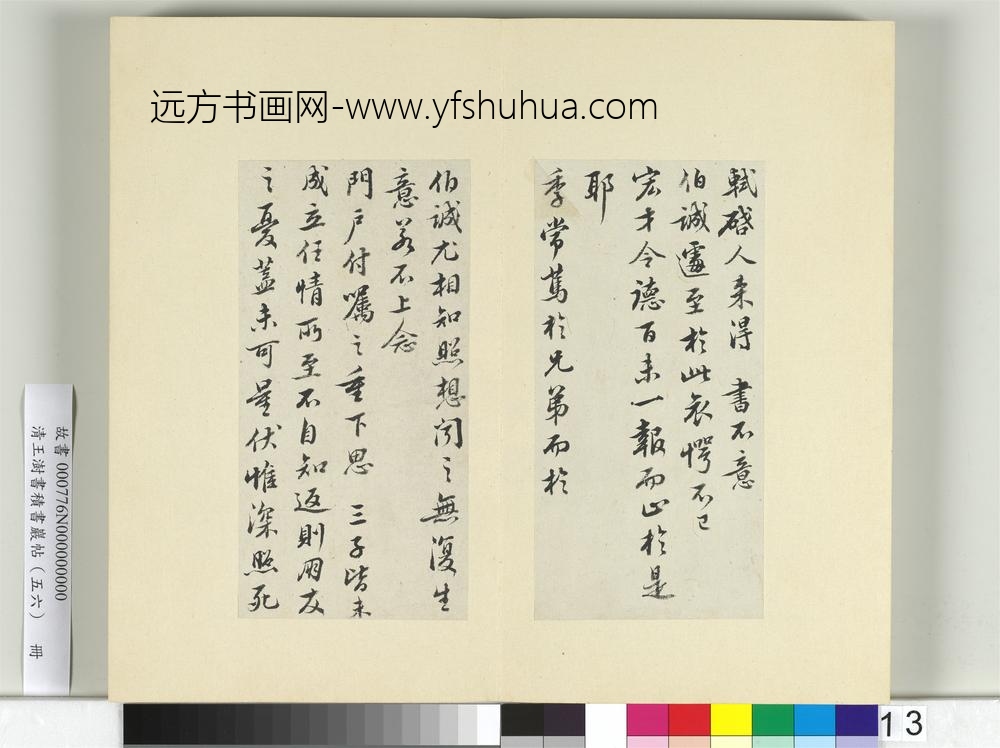 远方书画网-www.yfshuhua.com
軾啓人来得 書不意
伯誠遽至於此哀愕不已
宏才令德百未一報而止於是
耶
季常篤於兄弟而於
伯誠尤相知照想聞之無復生
意若不上念
門戶付囑之重下思 三子皆未
成立任情所至不自知返則朋友
之憂蓋未可量伏惟深照死
故書 000776N000000000
清王澍書積書巖帖（五六） 冊
13